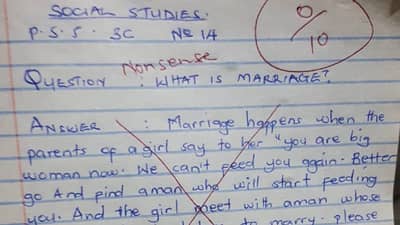 SOCIAL STUDIES.
P.S.5. 3C No 14
0/10
Nonsense
QUESTION : WHAT IS MARRIAGE?
ANSWER : Marriage happens when the
parents of a girl say to her "you are big
woman now. We can't feed you again. Better
go And find a man who will start feeding
you. And the girl meet with a man whose
to marry. please